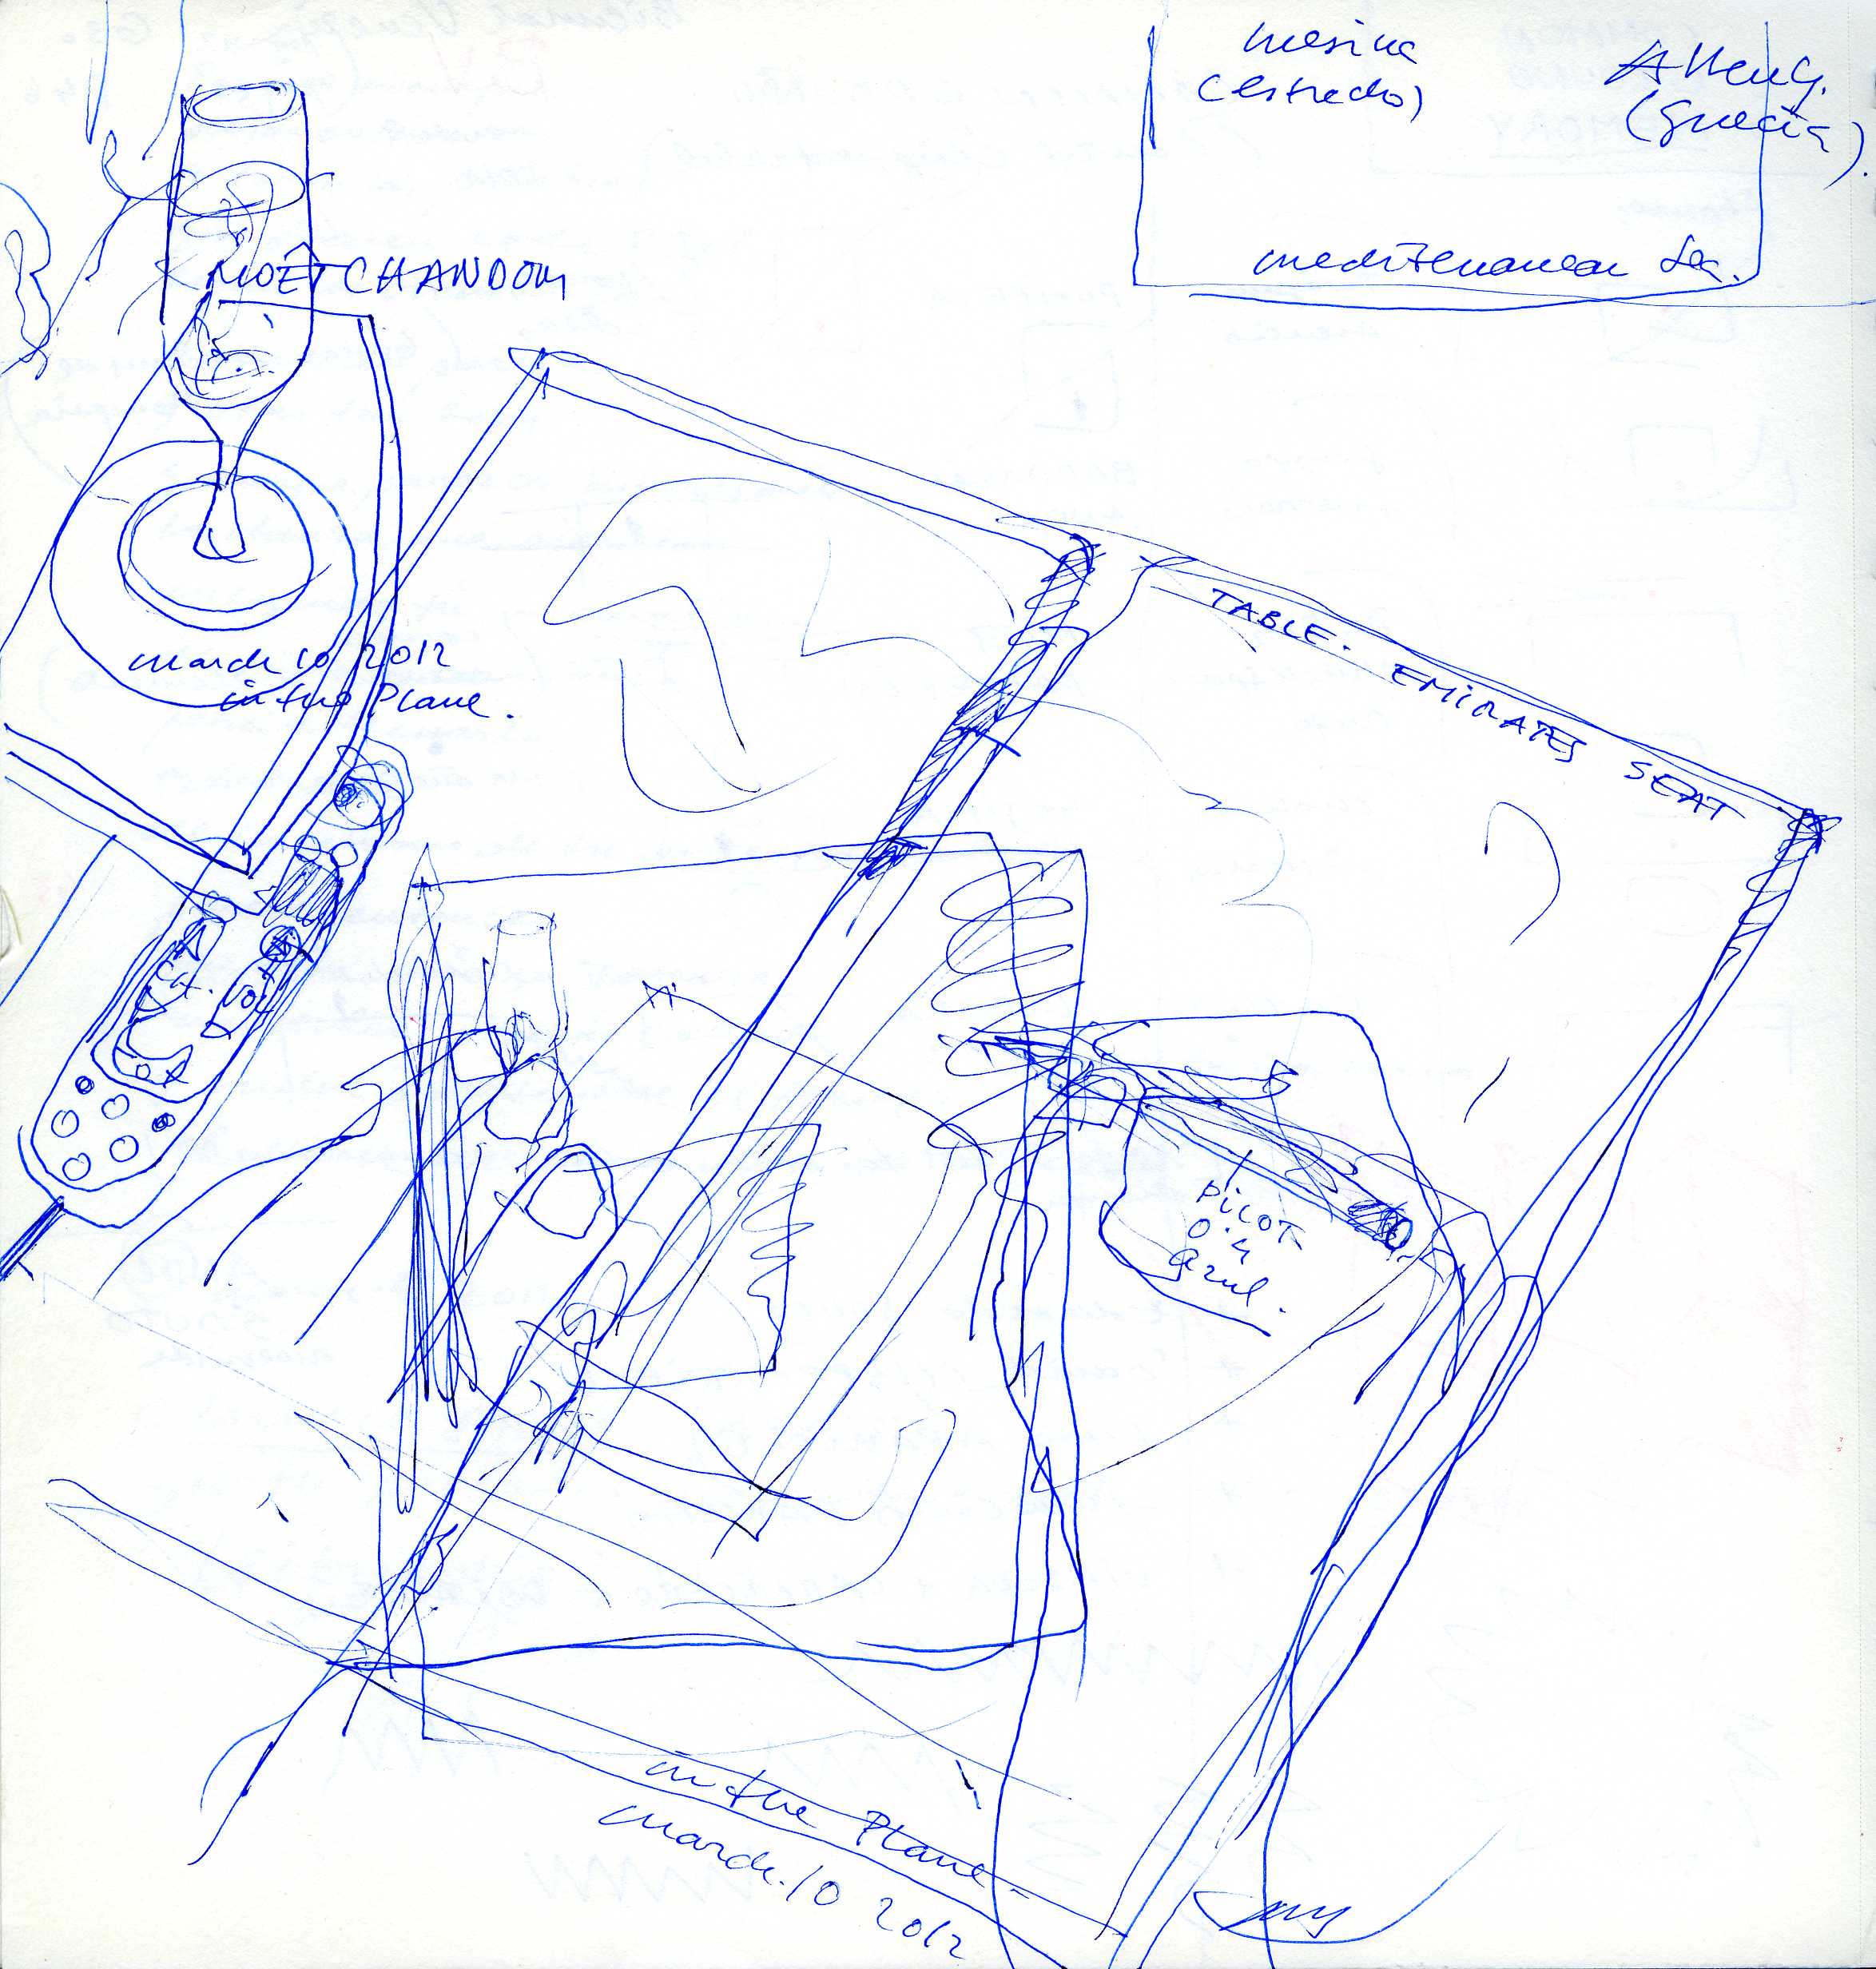 mesina
(estrecho)
Atenas.
(Grecia).
mediterranean Sea.
MOËT CHANDON
march 10 2012
in the Plane.
TABLE. EMIRATES SEAT
PILOT
0.4
azul.
in the Plane
march. 10 2012